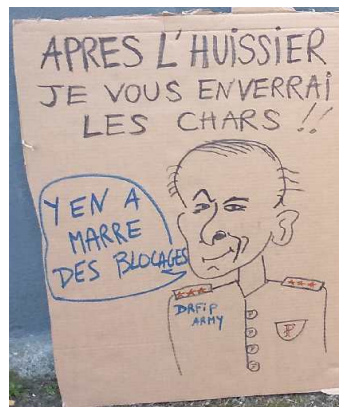 APRES L'HUISSIER
JE VOUS ENVERRAI
LES CHARS !!
Y EN A
MARRE
DES BLOCAGES
DRFiP
ARMY